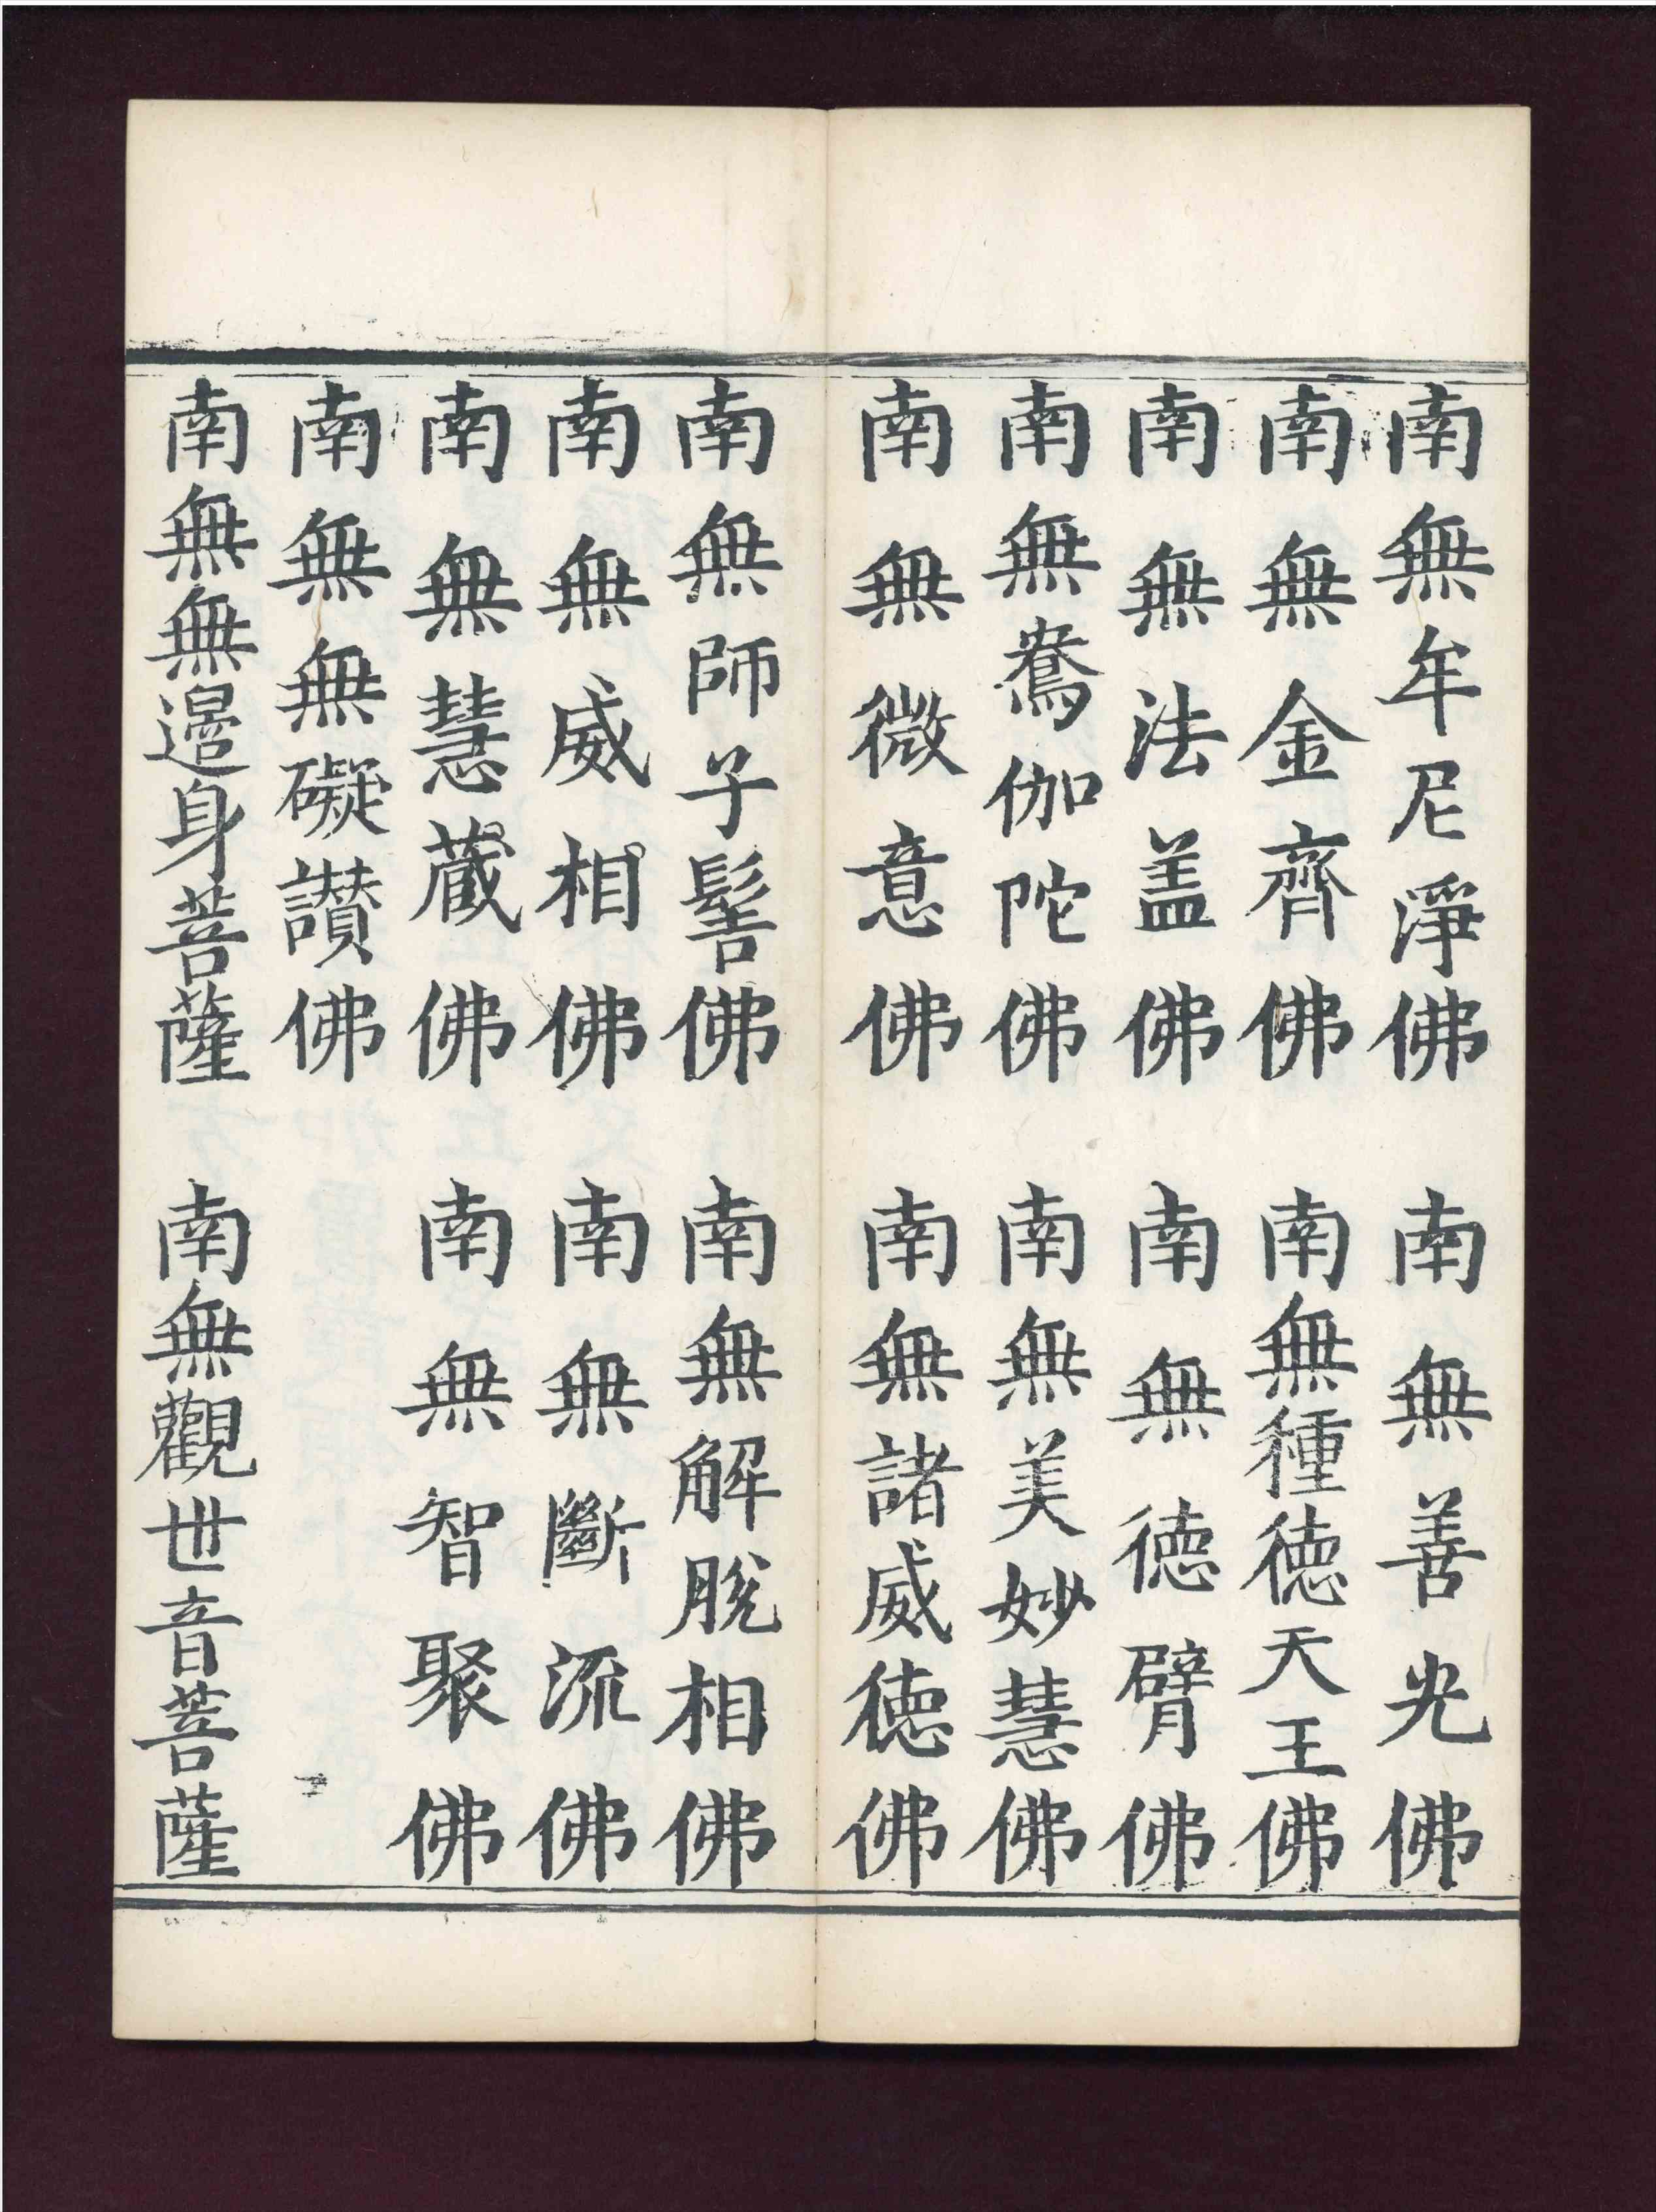 南無牟尼淨佛　南無善光佛
南無金齊佛　南無種徳天王佛
南無法盖佛　南無徳臂佛
南無鴦伽陀佛　南無美妙慧佛
南無微意佛　南無諸威徳佛
南無師子髻佛　南無解脫相佛
南無威相佛　南無斷流佛
南無慧蔵佛　南無智聚佛
南無無礙讃佛
南無無邊身菩薩　南無觀世音菩薩